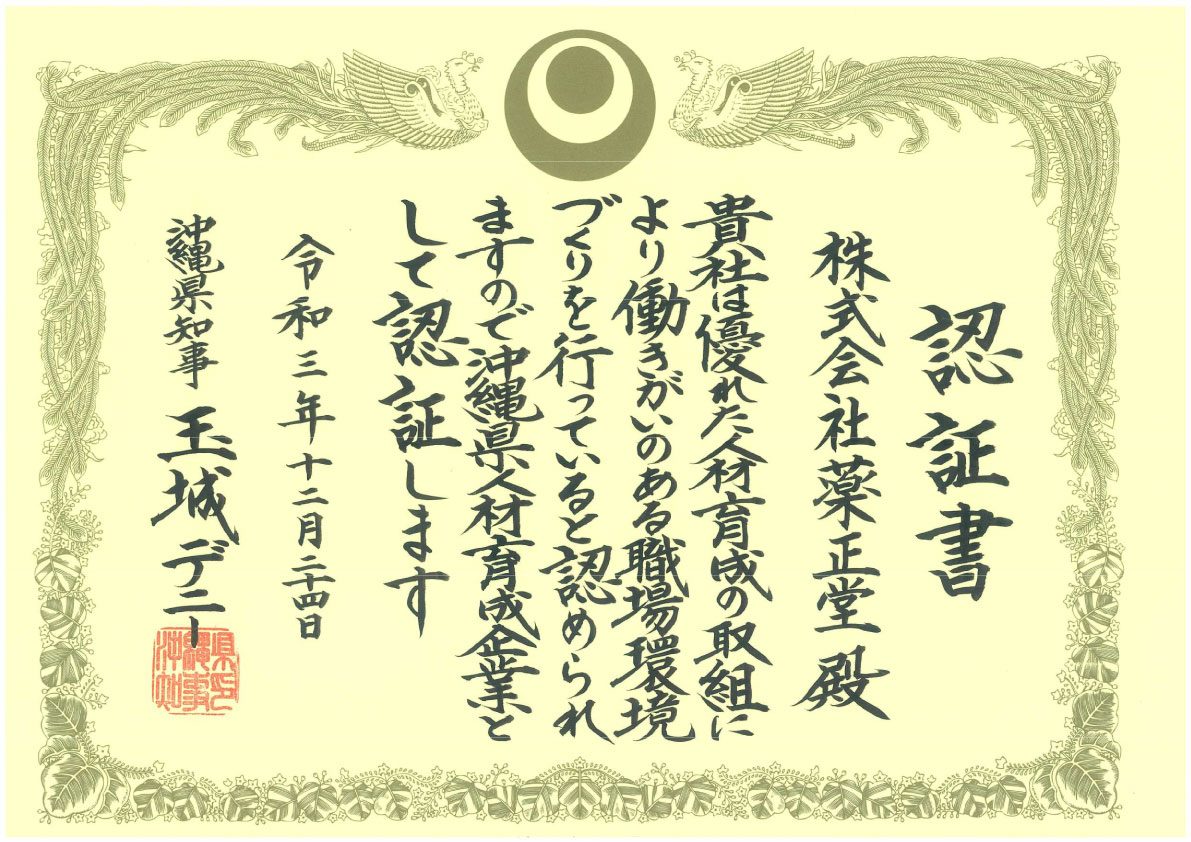 認証書
株式会社薬正堂 殿
貴社は優れた人材育成の取組に
より働きがいのある職場環境
づくりを行っていると認められ
ますので沖縄県人材育成企業と
して認証します
令和三年十二月二十四日
沖縄県知事 玉城デニー